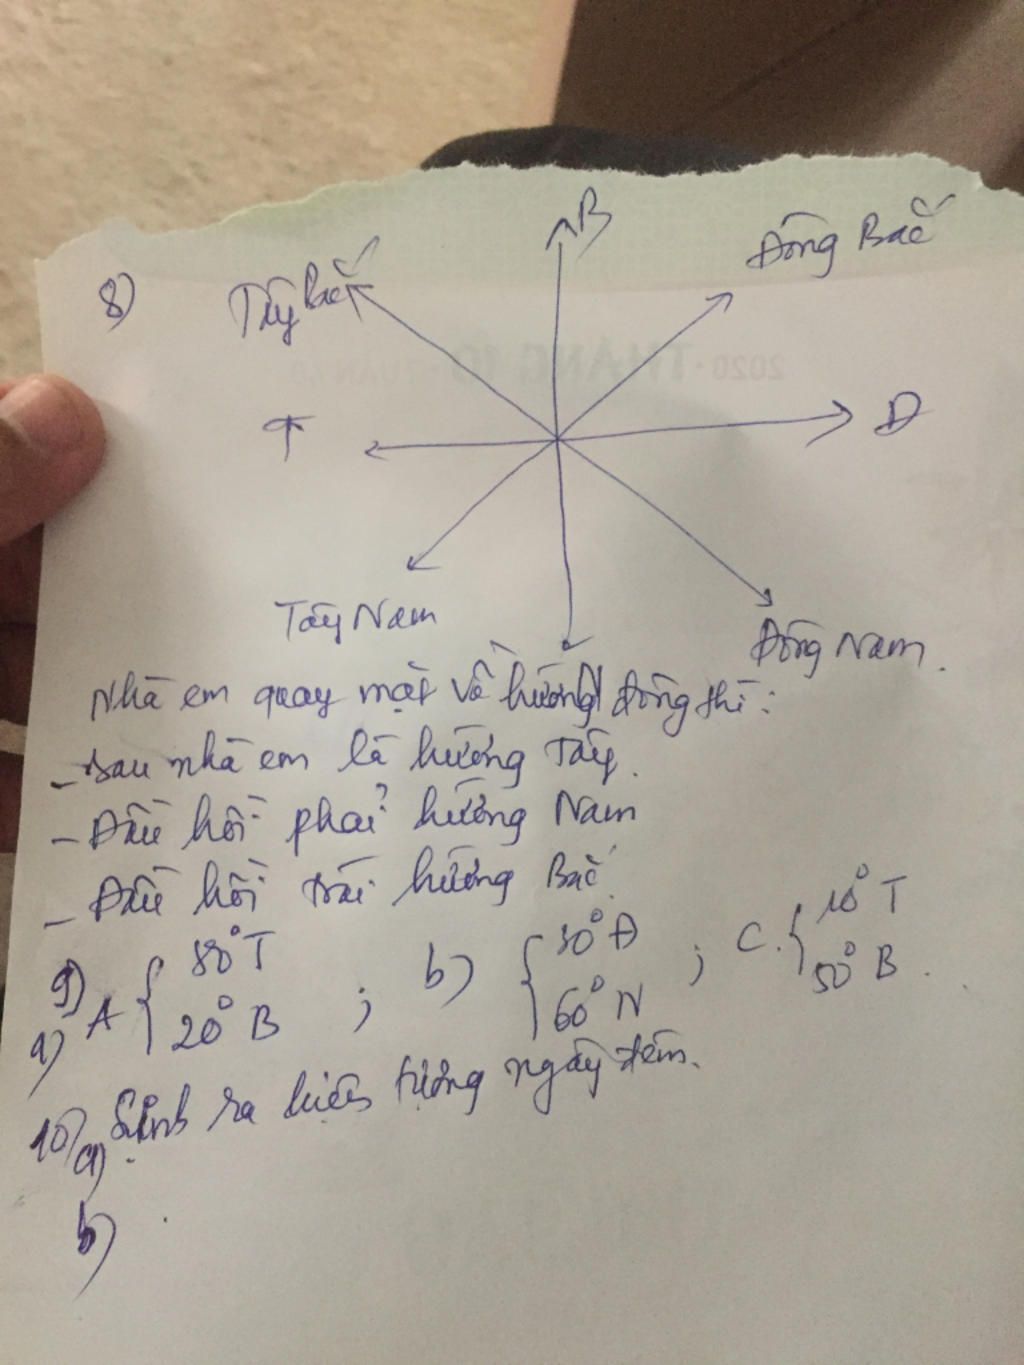 B
Đông Bắc
8)
Tây Bắc
2020 · THÁNG 10 · TUẦN 40
T
Đ
Tây Nam
Đông Nam.
Nhà em quay mặt về hướng đông thì:
- Sau nhà em là hướng Tây.
- Đầu hồi phải hướng Nam
- Đầu hồi trái hướng Bắc.
9)
a) A { 80° T 20° B ; b) { 30° Đ 60° N ; C. { 10° T 50° B .
10)
a) Sinh ra hiện tượng ngày đêm.
b)